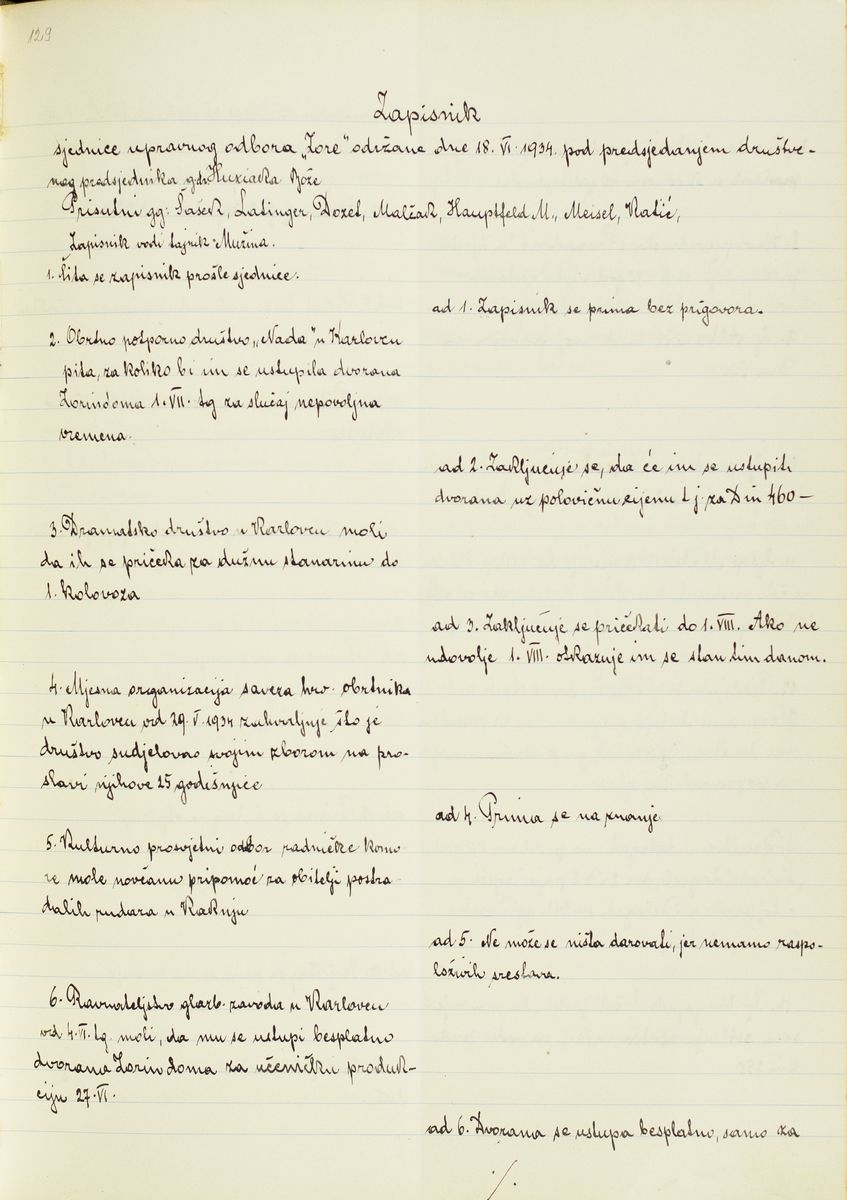 129
Zapisnik
sjednice upravnog odbora „Zore" održane dne 18. VI. 1934. pod predsjedanjem društve-
nog predsjednika Bože
Prisutni gg: Šašek, Latinger, Dozet, Malžak, Hauptfeld M., Meisel, Ratić,
Zapisnik vodi tajnik Mužina.
1. Čita se zapisnik prošle sjednice.
ad 1. Zapisnik se prima bez prigovora.
2. Obrtno potporno društvo „Nada" u Karlovcu
pita, za koliko bi im se ustupila dvorana
Zorin doma 1. VII. tg za slučaj nepovoljna
vremena.
ad 2. Zaključuje se, da će im se ustupiti
dvorana uz polovičnu cijenu t j. za Din 460—
3. Dramatsko društvo u Karlovcu moli
da ih se pričeka za dužnu stanarinu do
1. kolovoza
ad 3. Zaključuje se pričekati do 1. VIII. Ako ne
udovolje 1. VIII. otkazuje im se stan tim danom.
4. Mjesna organizacija saveza hrv. obrtnika
u Karlovcu od 29. V. 1934 zahvaljuje što je
društvo sudjelovao svojim zborom na pro-
slavi njihove 25 godišnjice
ad 4. Prima se na znanje
5. Kulturno prosvjetni odbor radničke komo
re mole novčanu pripomoć za obitelji postra
dalih rudara u Kaknju
ad 5. Ne može se ništa darovati, jer nemamo raspo-
loživih srestava.
6. Ravnateljstvo glazb. zavoda u Karlovcu
od 4. VI. tg. moli, da mu se ustupi besplatno
dvorana Zorin doma za učeničku produk-
ciju 27. VI.
ad 6. Dvorana se ustupa besplatno, samo za
./.